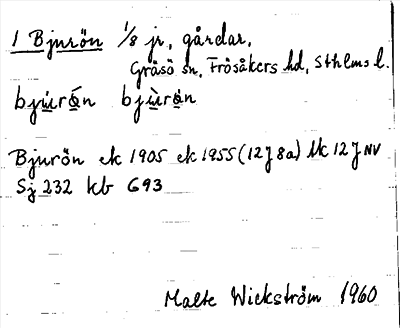 1 Bjurön 1/8 jr, gårdar,
Gräsö sn, Frösåkers hd, Sthlms l.
bjúrǿn bjùrøn
Bjurön ek 1905 ek 1955 (12J 8a) tk 12J NV
Sj 232 kb 693
Malte Wickström 1960